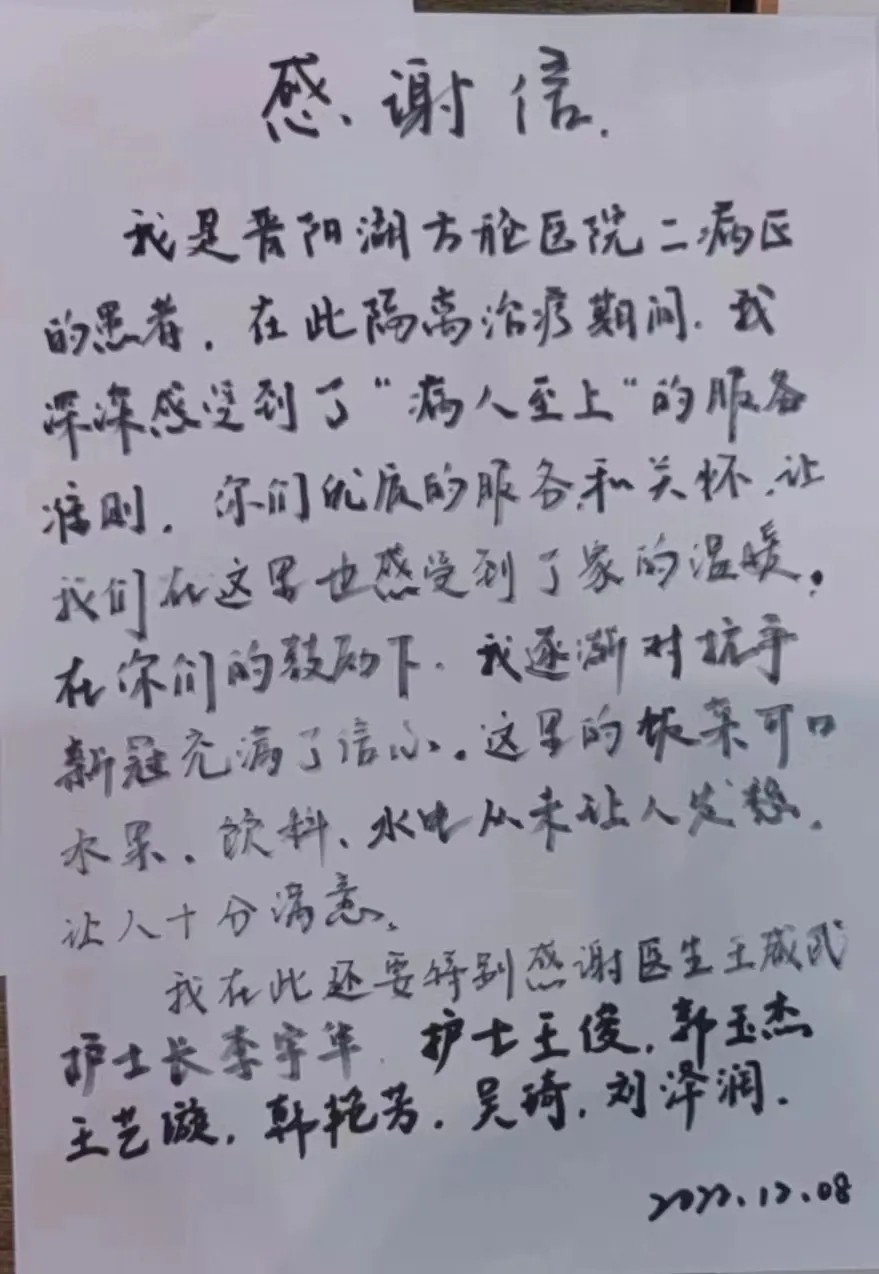 感谢信.
我是晋阳湖方舱医院二病区
的患者,在此隔离治疗期间.我
深深感受到了"病人至上"的服务
准则,你们优质的服务和关怀,让
我们在这里也感受到了家的温暖.
在你们的鼓励下.我逐渐对抗争
新冠充满了信心.这里的饭菜可口
水果、饮料、水电从未让人发愁.
让人十分满意.
我在此还要特别感谢医生王
护士长李宇华 护士王俊,郭玉杰
王艺璇,韩艳芳,吴琦,刘泽润.
2022.12.08